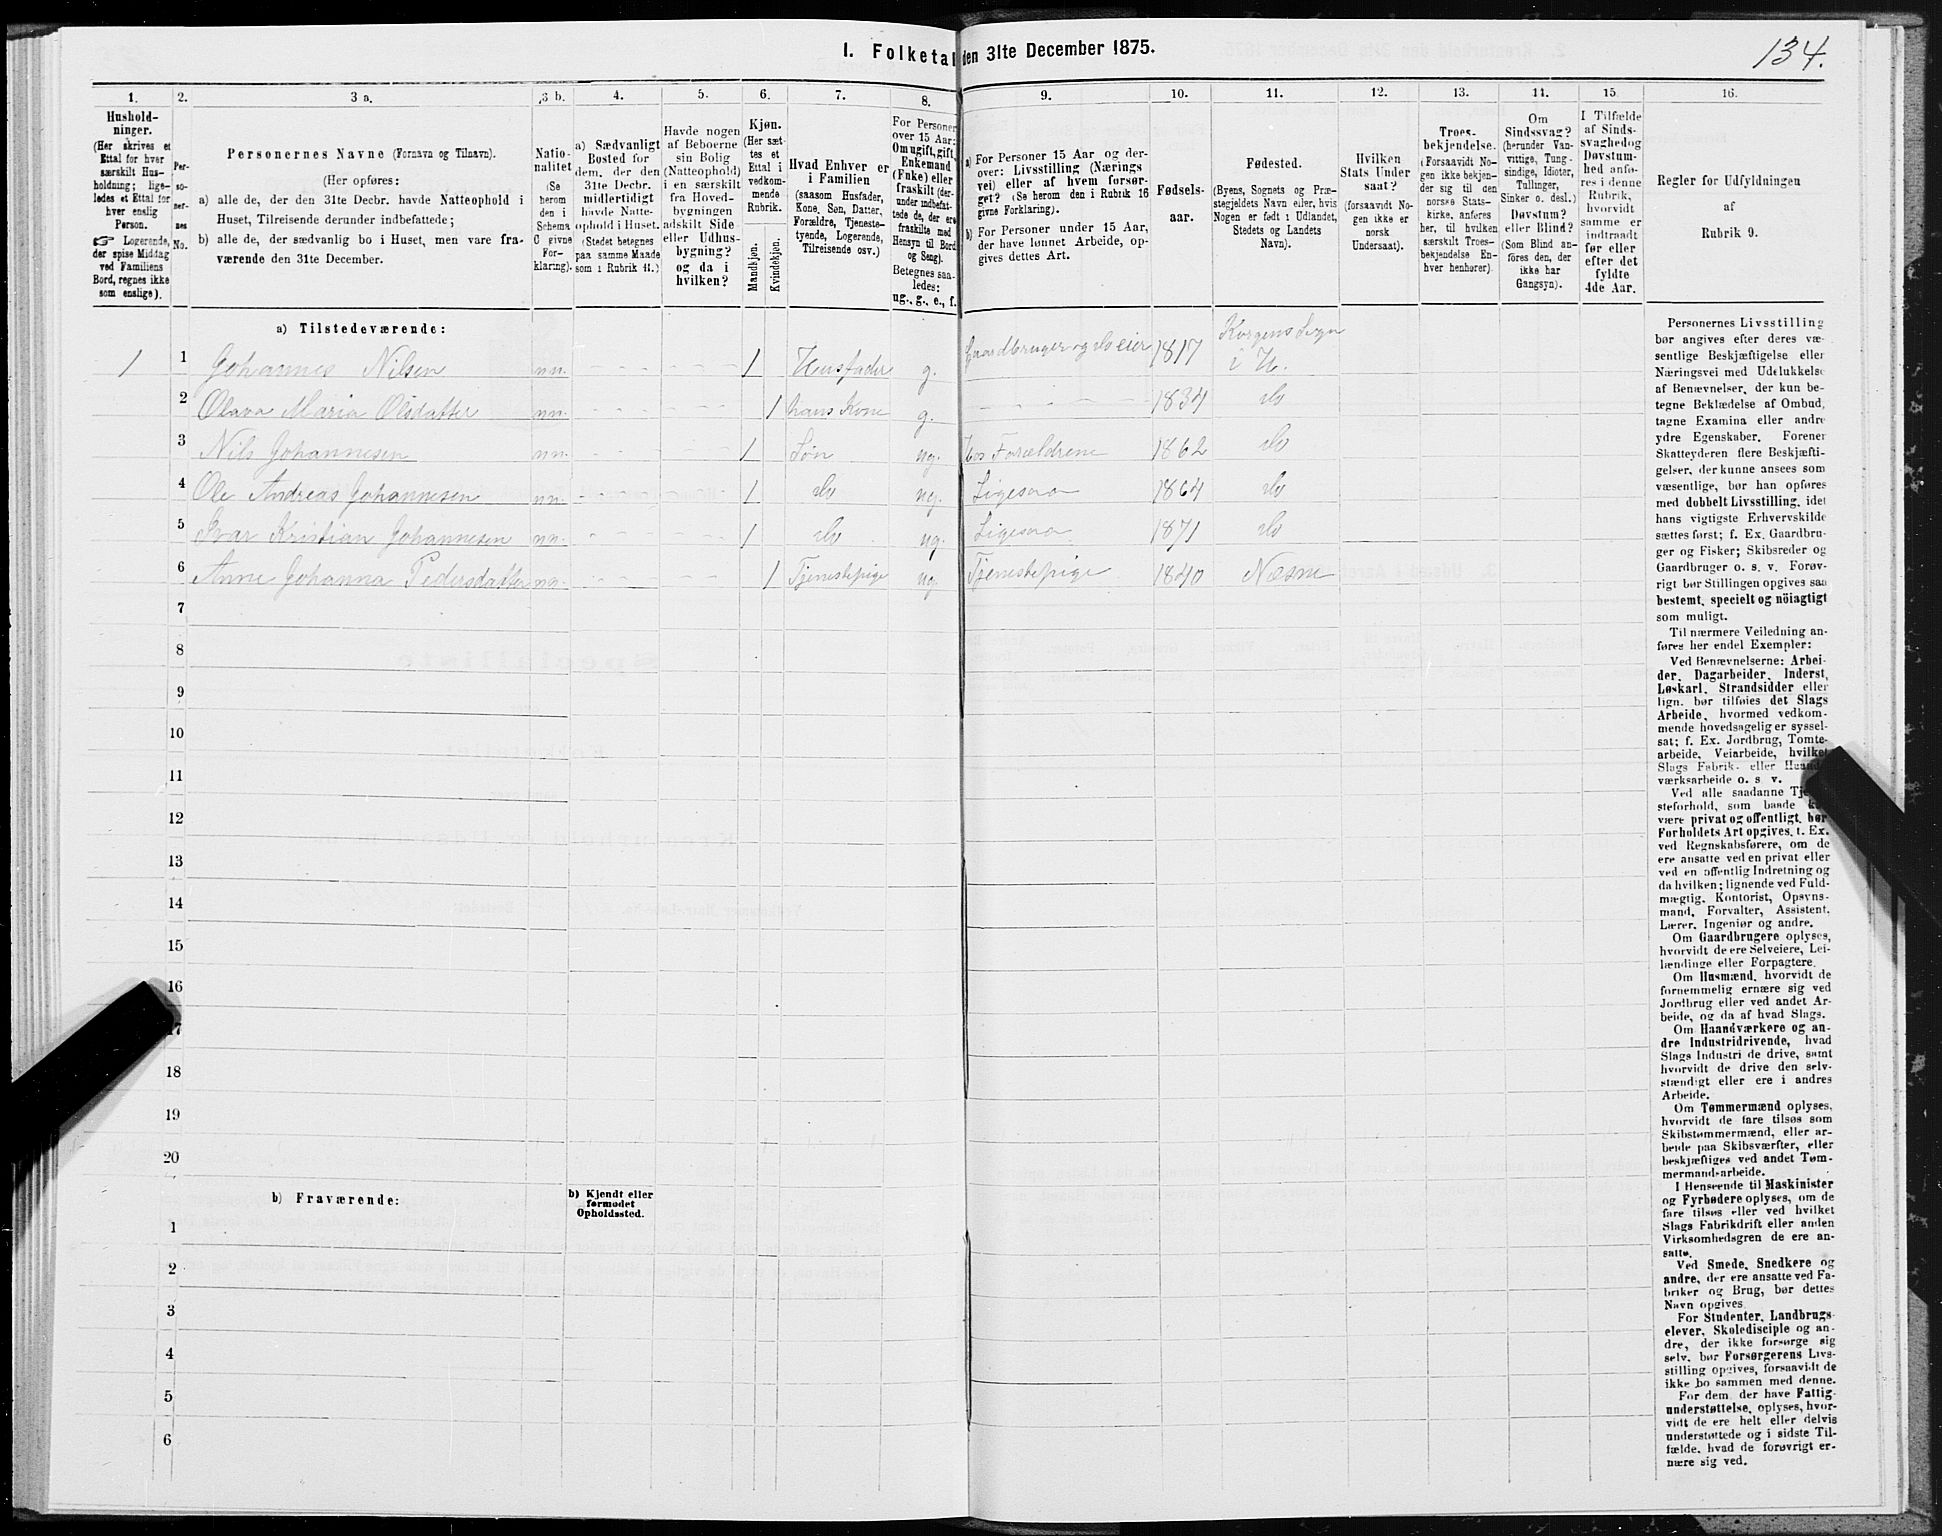 I. Folketal den 31te December 1875.
134.
1.
2.
3 a.
3 b.
4.
5.
6.
7.
8.
9.
10.
11.
12.
13.
14.
15.
16.
Hushold-
ninger.
(Her skrives et
Ettal for hver
særskilt Hus-
holdning; lige-
ledes et Ettal for
hver enslig
Person.
☞ Logerende,
der spise Middag
ved Familiens
Bord, regnes ikke
som enslige).
Per-
so-
ner-
nes
No.
Personernes Navne (Fornavn og Tilnavn).
(Her opføres:
a) alle de, der den 31te Decbr. havde Natteophold i
Huset, Tilreisende derunder indbefattede;
b) alle de, der sædvanlig bo i Huset, men vare fra-
værende den 31te December.
Natio-
nalitet
(Se
herom
den i
Schema
C givne
For-
klaring).
a) Sædvanligt
Bosted for
dem, der den
31te Decbr.
midlertidigt
havde Natte-
ophold i Huset.
(Stedet betegnes
paa samme Maade
som i Rubrik 11.)
Havde nogen
af Beboerne
sin Bolig
(Natteophold)
i en særskilt
fra Hoved-
bygningen
adskilt Side-
eller Udhus-
bygning?
og da i
hvilken?
Kjøn.
(Her sæt-
tes et
Ettal i
vedkom-
mende
Rubrik.
Mandkjøn.
Kvindekjøn.
Hvad Enhver er
i Familien
(saasom Husfader,
Kone, Søn, Datter,
Forældre, Tjeneste-
tyende, Logerende,
Tilreisende osv.)
For Personer
over 15 Aar:
Om ugift, gift,
Enkemand
(Enke) eller
fraskilt (der-
under indbefat-
tede de, der ere
fraskilte med
Hensyn til Bord
og Seng).
Betegnes saa-
ledes:
ug., g., e., f.
a) For Personer 15 Aar og der-
over: Livsstilling (Nærings
vei) eller af hvem forsør-
get? (Se herom den i Rubrik 16
givne Forklaring).
b) For Personer under 15 Aar,
der have lønnet Arbeide, op-
gives dettes Art.
Fødsels-
aar.
Fødested.
(Byens, Sognets og Præ-
stegjeldets Navn eller, hvis
Nogen er født i Udlandet,
Stedets og Landets
Navn).
Hvilken
Stats Under
saat?
(forsaavidt No-
gen ikke er
norsk
Undersaat).
Troes-
bekjendelse.
(Forsaavidt No-
gen ikke bekjen-
der sig til den
norske Stats-
kirke, anføres
her, til hvilken
særskilt Troes-
bekjendelse En-
hver henhører).
Om
Sindssvag?
(herunder Van-
vittige, Tung-
sindige, Idioter,
Tullinger,
Sinker o. desl.)
Døvstum?
eller Blind?
(Som Blind an-
føres den, der
ikke har
Gangsyn).
I Tilfælde
af Sinds-
svaghed og
Døvstum-
hed anfø-
res i denne
Rubrik,
hvorvidt
samme er
indtraadt
før eller
efter det
fyldte
4de Aar.
Regler for Udfyldningen
af
Rubrik 9.
a) Tilstedeværende:
1 1 Johannes Nilsen nn. 1 Husfader g. Gaardbruger og Sæleier 1817 Korgens Sogn i H.
2 Olava Maria Olsdatter nn. 1 hans Kone g. 1834 do
3 Nils Johannesen nn. 1 Søn ug. hos Forældrene 1862 do
4 Ole Andreas Johannesen nn. 1 do ug. Ligesaa 1864 do
5 Ivar Kristian Johannesen nn. 1 do ug. Ligesaa 1871 do
6 Anne Johanna Pedersdatter nn. 1 Tjenestepige ug. Tjenestepige 1840 Næsne
7
8
9
10
11
12
13
14
15
16
17
18
19
20
b) Fraværende:
b) Kjendt eller
formodet
Opholdssted.
1
2
3
4
5
6
Personernes Livsstilling
bør angives efter deres væ-
sentlige Beskjæftigelse eller
Næringsvei med Udelukkelse
af Benævnelser, der kun be-
tegne Beklædelse af Ombud,
tagne Examina eller andre
ydre Egenskaber. Forener
Skatteyderen flere Beskjæfti-
gelser, der kunne ansees som
væsentlige, bør han opføres
med dobbelt Livsstilling, idet
hans vigtigste Erhvervskilde
sættes først; f. Ex. Gaardbru-
ger og Fisker; Skibsreder og
Gaardbruger o. s. v. Forøv-
rigt bør Stillingen opgives saa
bestemt, specielt og nöiagtigt
som muligt.
Til nærmere Veiledning an-
føres her endel Exempler:
Ved Benævnelserne: Arbei-
der, Dagarbeider, Inderst,
Løskarl, Strandsidder eller
lign. bør tilføies det Slags
Arbeide, hvormed vedkom-
mende hovedsagelig er syssel-
sat; f. Ex. Jordbrug, Tomte-
arbeide, Veiarbeide, hvilket
Slags Fabrik- eller Haand-
værksarbeide o. s. v.
Ved alle saadanne Tje-
steforhold, som baade k
være privat og offentligt, bør
Forholdets Art opgives, t. Ex.
ved Regnskabsførere, om de
ere ansatte ved en privat eller
ved en offentlig Indretning og
da hvilken; lignende ved Fuld-
mægtig, Kontorist, Opsyns-
mand, Forvalter, Assistent,
Lærer, Ingeniør og andre.
Om Gaardbrugere oplyses,
hvorvidt de ere Selveiere, Lei-
lændinge eller Forpagtere.
Om Husmænd, hvorvidt de
fornemmelig ernære sig ved
Jordbrug eller ved andet Ar-
beide, og da af hvad Slags.
Om Haandværkere og an-
dre Industridrivende, hvad
Slags Industri de drive, samt
hvorvidt de drive den selv-
stændigt eller ere i andres
Arbeide.
Om Tømmermænd oplyses,
hvorvidt de fare tilsøs som
Skibstømmermænd, eller ar-
beide paa Skibsværfter, eller
beskjæftiges ved andet Tøm-
mermand-arbeide.
I Henseende til Maskinister
og Fyrbødere oplyses, om de
fare tilsøs eller ved hvilket
Slags Fabrikdrift eller anden
Virksomhedsgren de ere an-
satte.
Ved Smede, Snedkere og
andre, der ere ansatte ved Fa-
briker og Brug, bør dettes
Navn opgives.
For Studenter, Landbrugs-
elever, Skoledisciple og an-
dre, der ikke forsørge sig
selv, bør Forsørgerens Livs-
stilling opgives, forsaavidt de
ikke bo sammen med denne.
For dem, der have Fattig-
understøttelse, oplyses, hvor-
vidt de ere helt eller delvis
understøttede og i sidste Til-
fælde, hvad de forøvrigt er-
nære sig ved.